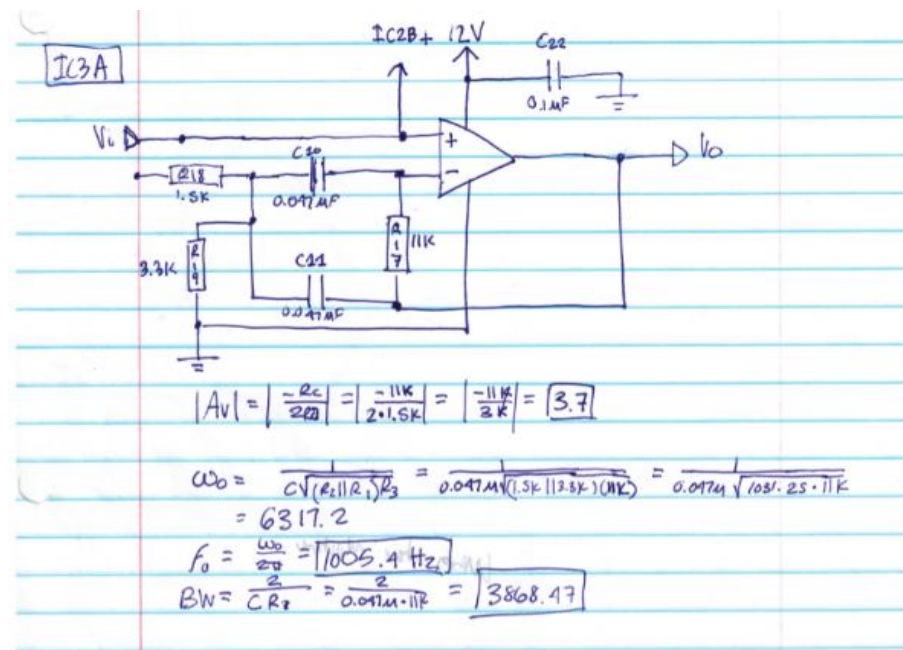 IC3A
IC2B+ 12V
C22
0.1µF
Vi
+
C10
Vo
R18
-
1.5K
0.047µF
R17
11K
3.3K
R19
C11
0.047µF
|Av| = |-Rc/2R| = |-11K/2·1.5K| = |-11K/3K| = 3.7
ω₀ = 1/C√(R₂||R₁)R₃ = 1/0.047µ√(1.5K||3.3K)(11K) = 1/0.047µ√1031.25·11K
= 6317.2
F₀ = ω₀/2π = 1005.4 Hz
BW = 2/CR₃ = 2/0.047µ·11K = 3868.47